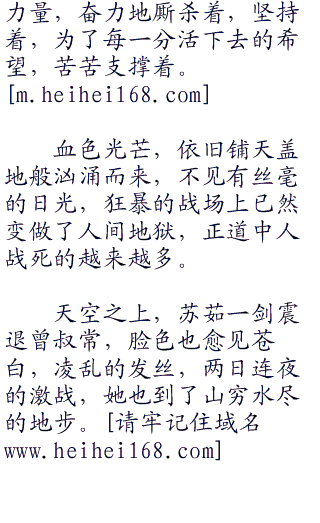 力量，奋力地厮杀着，坚持
着，为了每一分活下去的希
望，苦苦支撑着。
[m.heihei168.com]
血色光芒，依旧铺天盖
地般汹涌而来，不见有丝毫
的日光，狂暴的战场上已然
变做了人间地狱，正道中人
战死的越来越多。
天空之上，苏茹一剑震
退曾叔常，脸色也愈见苍
白，凌乱的发丝，两日连夜
的激战，她也到了山穷水尽
的地步。[请牢记住域名
www.heihei168.com]